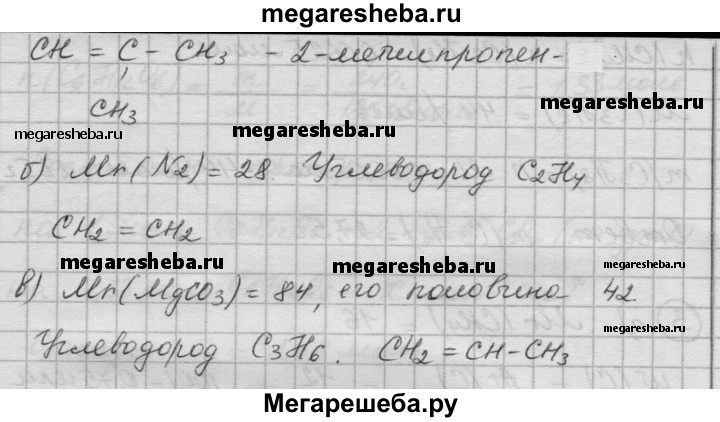 megaresheba.ru
CH = C - CH3 - 2-метилпропен-
CH3
megaresheba.ru
megaresheba.ru
megaresheba.ru
б) Mr(N2) = 28. Углеводород C2H4
CH2 = CH2
megaresheba.ru
megaresheba.ru
megaresheba.ru
в) Mr(MgCO3) = 84, его половина 42.
Углеводород C3H6. CH2 = CH-CH3
Мегарешеба.ру